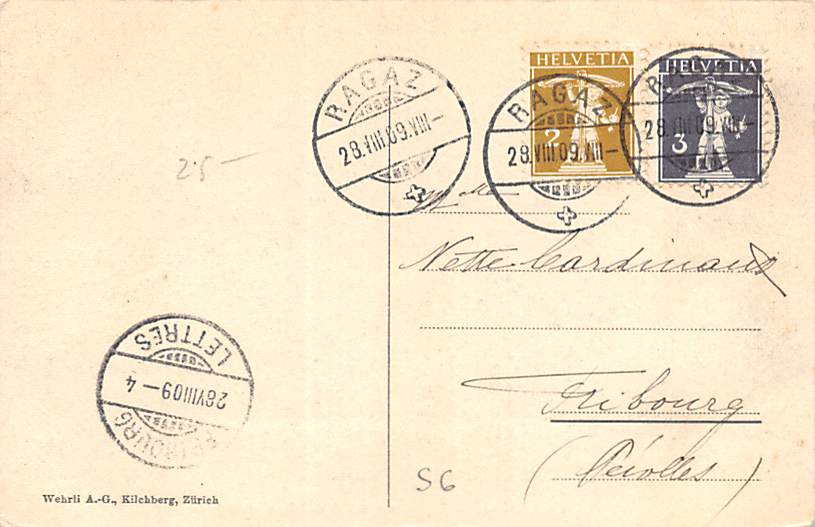 HELVETIA
2
HELVETIA
3
RAGAZ
28.VIII.09.VIII-
RAGAZ
28.VIII.09.VIII-
28.VIII.09.VIII-
25-
Mlle
Nette Cardinaux
Fribourg
(Pérolles)
FRIBOURG
28VIII09-4
LETTRES
S6
Wehrli A.-G., Kilchberg, Zürich